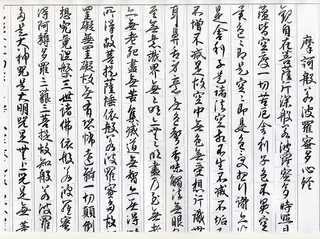 摩訶般若波羅蜜多心經
觀自在菩薩行深般若波羅蜜多時照見五
蘊皆空度一切苦厄舍利子色不異空空
不異色色即是空空即是色受想行識亦復如
是舍利子是諸法空相不生不滅不垢不淨
不增不減是故空中無色無受想行識無眼
耳鼻舌身意無色聲香味觸法無眼
界乃至無意識界無無明亦無無明盡乃至無老
死亦無老死盡無苦集滅道無智亦無得以無
所得故菩提薩埵依般若波羅蜜多故心無
罣礙無罣礙故無有恐怖遠離一切顛倒夢
想究竟涅槃三世諸佛依般若波羅蜜多故
得阿耨多羅三藐三菩提故知般若波羅蜜
多是大神咒是大明咒是無上咒是無等